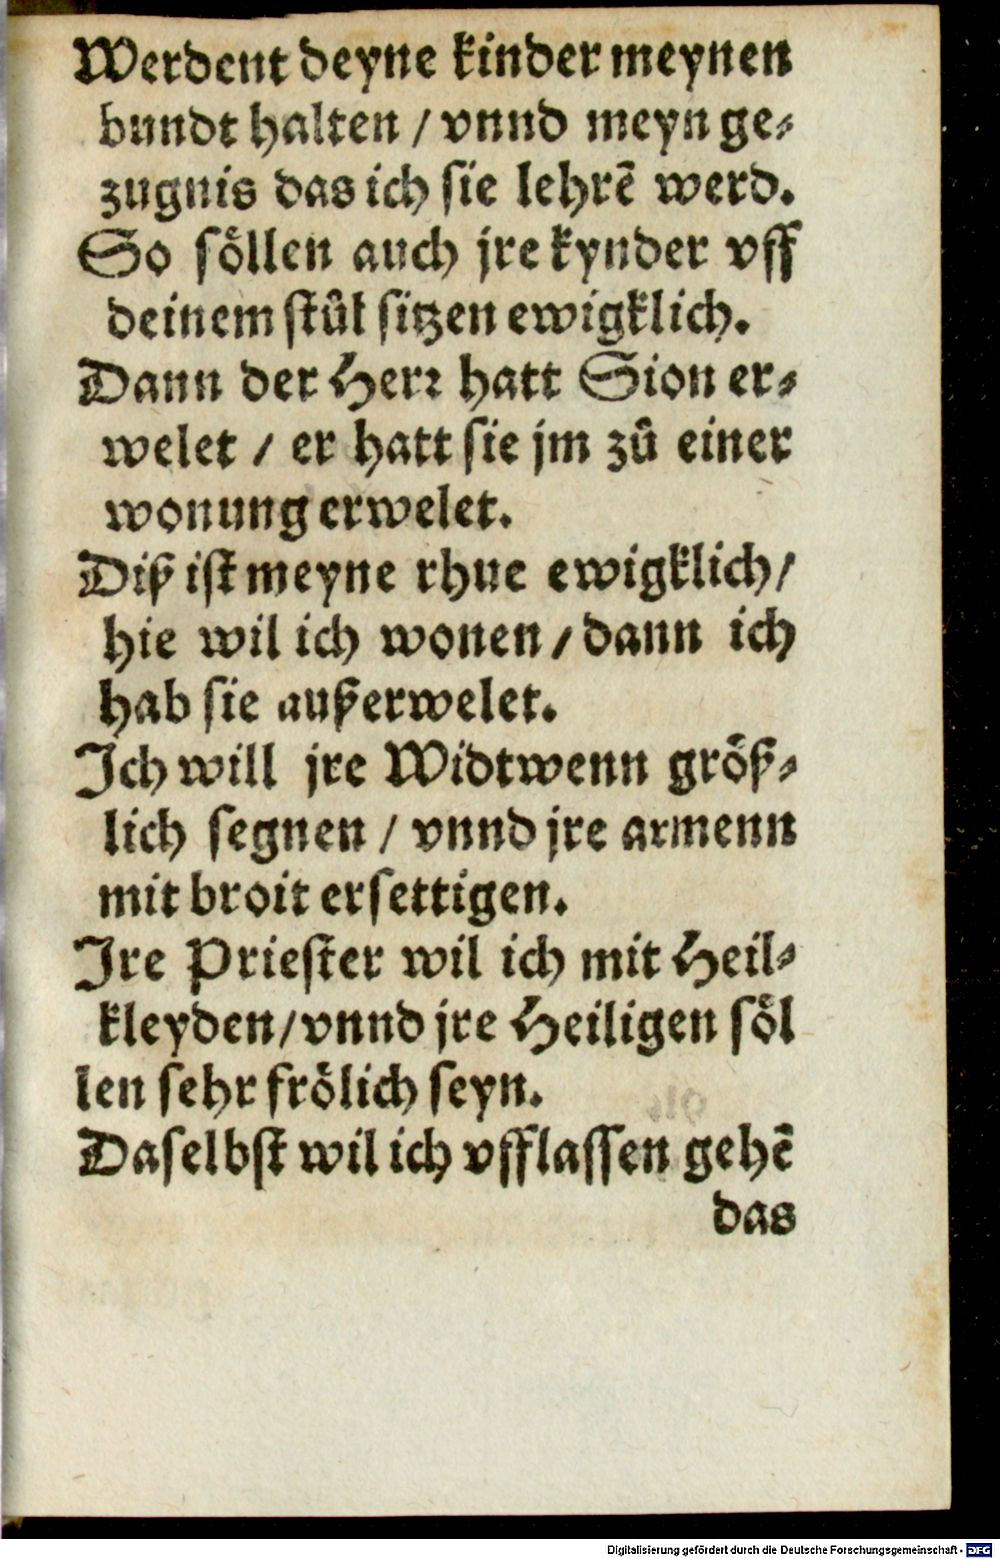 Werdent deyne kinder meynen
bundt halten / vnnd meyn ge⸗
zugnis das ich sie lehrē werd.
So soͤllen auch jre kynder vff
deinem stuͦl sitzen ewigklich.
Dann der Herꝛ hatt Sion er⸗
welet / er hatt sie jm zuͦ einer
wonung erwelet.
Diß ist meyne rhue ewigklich/
hie wil ich wonen / dann ich
hab sie außerwelet.
Ich will jre Widtwenn groͤß⸗
lich segnen / vnnd jre armenn
mit broit ersettigen.
Ire Priester wil ich mit Heil⸗
kleyden/vnnd jre Heiligen soͤl
len sehr froͤlich seyn.
Daselbst wil ich vfflassen gehē
das
Digitalisierung gefördert durch die Deutsche Forschungsgemeinschaft - DFG